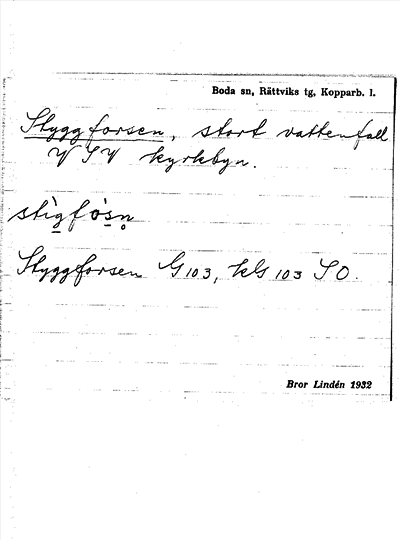 Boda sn, Rättviks tg, Kopparb. l.
Styggforsen, stort vattenfall
V S V kyrkbyn.
stìgfòsn
Styggforsen G 103, kls 103 S O.
Bror Lindén 1932